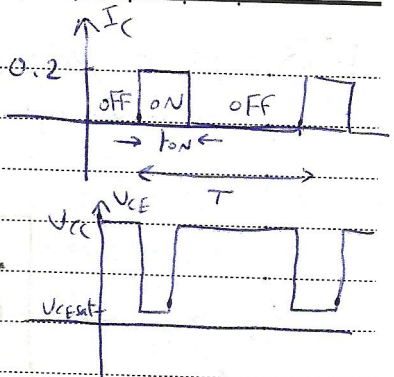 IC
0.2
OFF ON OFF
tON
T
VCE
VCC
VCEsat